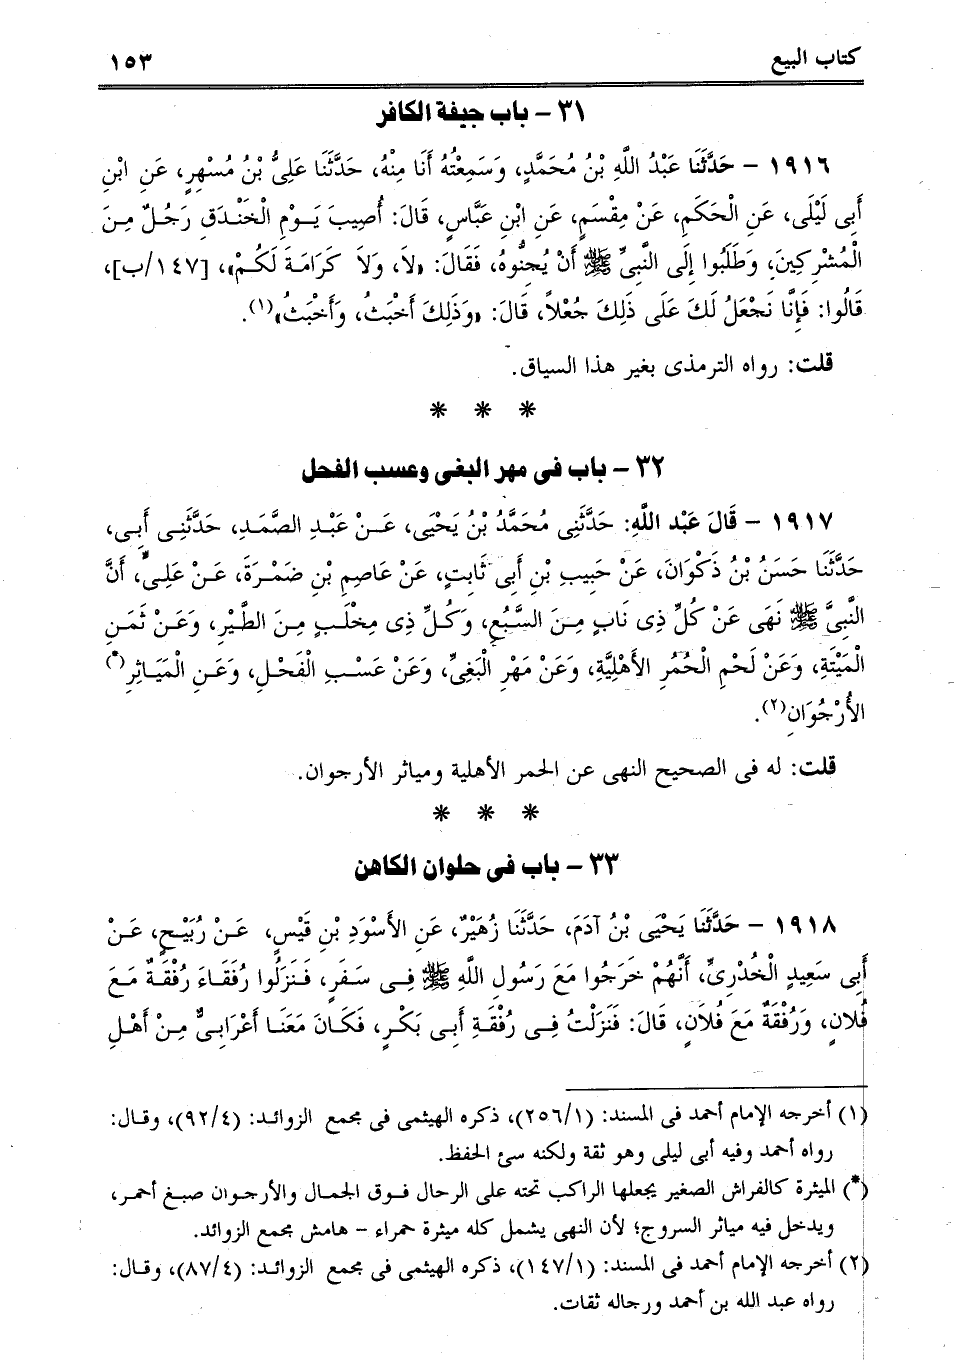 كتاب البيع ١٥٣
٣١ – باب جيفة الكافر
١٩١٦ – حَدَّثَنَا عَبْدُ اللَّهِ بْنُ مُحَمَّدٍ، وَسَمِعْتُهُ أَنَا مِنْهُ، حَدَّثَنَا عَلِىُّ بْنُ مُسْهِرٍ، عَنِ ابْنِ
أَبِى لَيْلَى، عَنِ الْحَكَمِ، عَنْ مِقْسَمٍ، عَنِ ابْنِ عَبَّاسٍ، قَالَ: أُصِيبَ يَوْمَ الْخَنْدَقِ رَجُلٌ مِنَ
الْمُشْرِكِينَ، وَطَلَبُوا إِلَى النَّبِىِّ ﷺ أَنْ يُجِنُّوهُ، فَقَالَ: «لاَ، وَلاَ كَرَامَةَ لَكُمْ»، [١٤٧/ب]،
قَالُوا: فَإِنَّا نَجْعَلُ لَكَ عَلَى ذَلِكَ جُعْلاً، قَالَ: «وَذَلِكَ أَخْبَثُ، وَأَخْبَثُ»(١).
قلت: رواه الترمذى بغير هذا السياق.
* * *
٣٢ – باب فى مهر البغى وعسب الفحل
١٩١٧ – قَالَ عَبْد اللَّهِ: حَدَّثَنِى مُحَمَّدُ بْنُ يَحْيَى، عَنْ عَبْدِ الصَّمَدِ، حَدَّثَنِى أَبِى،
حَدَّثَنَا حَسَنُ بْنُ ذَكْوَانَ، عَنْ حَبِيبِ بْنِ أَبِى ثَابِتٍ، عَنْ عَاصِمِ بْنِ ضَمْرَةَ، عَنْ عَلِىٍّ، أَنَّ
النَّبِىَّ ﷺ نَهَى عَنْ كُلِّ ذِى نَابٍ مِنَ السَّبُعِ، وَكُلِّ ذِى مِخْلَبٍ مِنَ الطَّيْرِ، وَعَنْ ثَمَنِ
الْمَيْتَةِ، وَعَنْ لَحْمِ الْحُمُرِ الأَهْلِيَّةِ، وَعَنْ مَهْرِ الْبَغِىِّ، وَعَنْ عَسْبِ الْفَحْلِ، وَعَنِ الْمَيَاثِرِ(*)
الأُرْجُوَانِ(٢).
قلت: له فى الصحيح النهى عن الحمر الأهلية ومياثر الأرجوان.
* * *
٣٣ – باب فى حلوان الكاهن
١٩١٨ – حَدَّثَنَا يَحْيَى بْنُ آدَمَ، حَدَّثَنَا زُهَيْرٌ، عَنِ الأَسْوَدِ بْنِ قَيْسٍ، عَنْ رُبَيْحٍ، عَنْ
أَبِى سَعِيدٍ الْخُدْرِىِّ، أَنَّهُمْ خَرَجُوا مَعَ رَسُولِ اللَّهِ ﷺ فِى سَفَرٍ، فَنَزَلُوا رُفَقَاءَ رُفْقَةٌ مَعَ
فُلاَنٍ، وَرُفْقَةٌ مَعَ فُلاَنٍ، قَالَ: فَنَزَلْتُ فِى رُفْقَةِ أَبِى بَكْرٍ، فَكَانَ مَعَنَا أَعْرَابِىٌّ مِنْ أَهْلِ
(١) أخرجه الإمام أحمد فى المسند: (٢٥٦/١)، ذكره الهيثمى فى مجمع الزوائد: (٩٢/٤)، وقال:
رواه أحمد وفيه أبى ليلى وهو ثقة ولكنه سئ الحفظ.
(*) الميثرة كالفراش الصغير يجعلها الراكب تحته على الرحال فوق الجمال والأرجوان صبغ أحمر،
ويدخل فيه مياثر السروج؛ لأن النهى يشمل كله ميثرة حمراء – هامش مجمع الزوائد.
(٢) أخرجه الإمام أحمد فى المسند: (١٤٧/١)، ذكره الهيثمى فى مجمع الزوائد: (٨٧/٤)، وقال:
رواه عبد الله بن أحمد ورجاله ثقات.